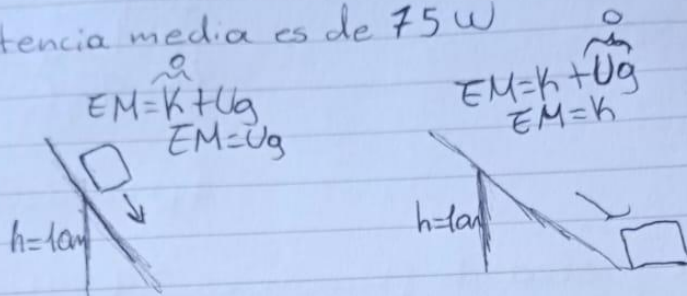 tencia media es de 75 W
0
EM=K+Ug
EM=Ug
h=10m
0
EM=K+Ug
EM=K
h=10m